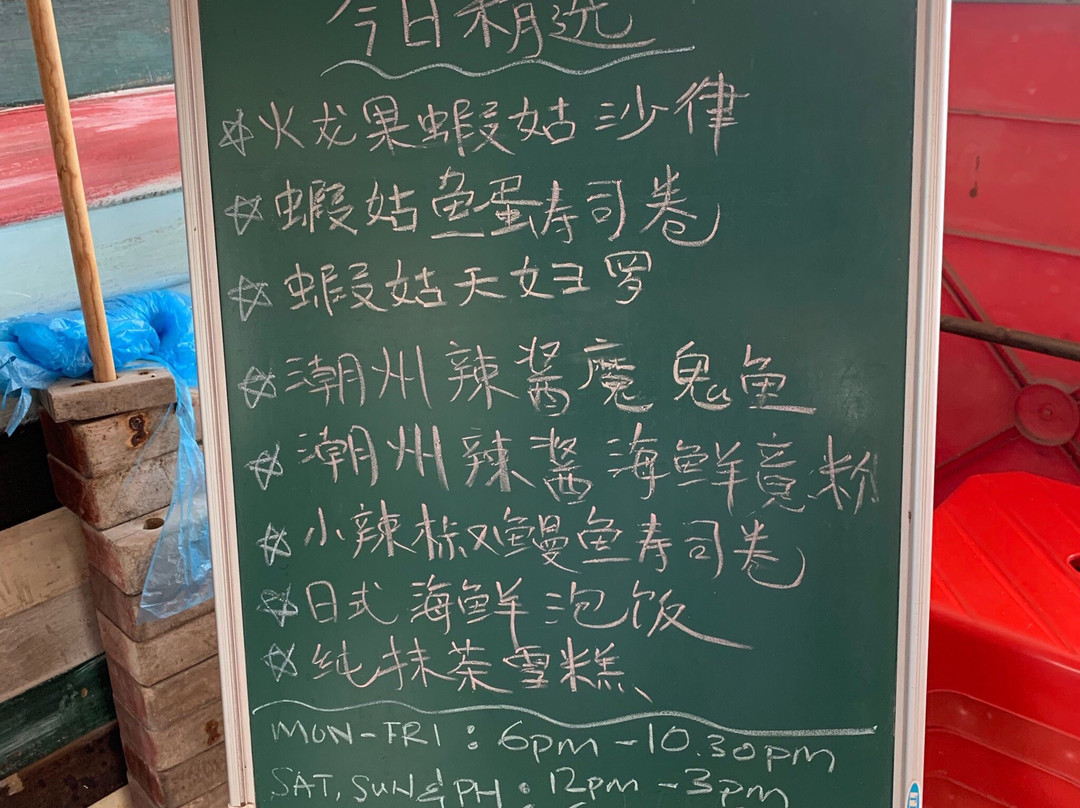 今日精选
☆火龙果蝦姑沙律
☆蝦姑鱼蛋寿司卷
☆蝦姑天妇罗
☆潮州辣酱魔鬼鱼
☆潮州辣酱海鲜竟粉
☆小辣椒鳗鱼寿司卷
☆日式海鲜泡饭
☆纯抹茶雪糕
MON-FRI: 6pm-10.30pm
SAT, SUN & PH: 12pm-3pm